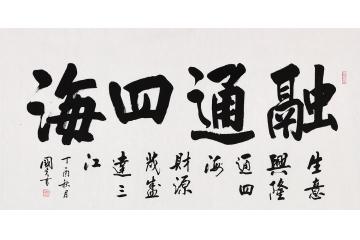 融通四海
生意
興隆
通四
海
財源
茂盛
達三
江
丁酉秋月
國